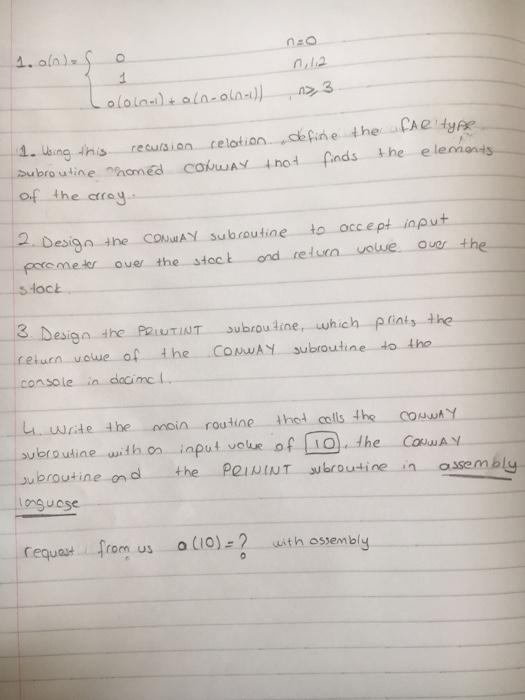 1. a(n) = { 0 n=0
1 n,1,2
a(a(n-1) + a(n-a(n-1)) , n≥3
1. Using this recursion relation, define the FAR type
subroutine named CONWAY that finds the elements
of the array.
2. Design the CONWAY subroutine to accept input
parameter over the stack and return value over the
stack.
3. Design the PRINTINT subroutine, which prints the
return value of the CONWAY subroutine to the
console in decimal.
4. Write the main routine that calls the CONWAY
subroutine with an input value of 10, the CONWAY
subroutine and the PRININT subroutine in assembly
language
request from us a(10)=? with assembly